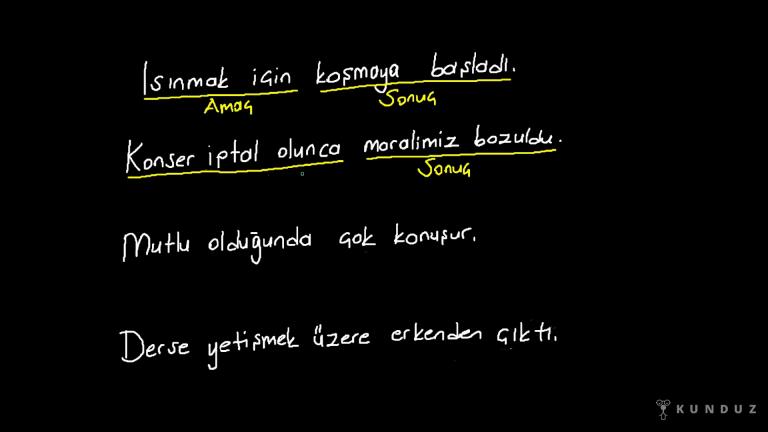 Isınmak için koşmaya başladı.
Amaç Sonuç
Konser iptal olunca moralimiz bozuldu.
Sonuç
Mutlu olduğunda çok konuşur.
Derse yetişmek üzere erkenden çıktı.
KUNDUZ